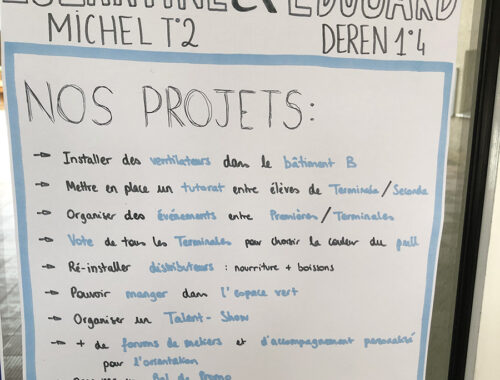 & EDOUARD
MICHEL T°2 DEREN 1°4
NOS PROJETS:
→ Installer des ventilateurs dans le bâtiment B
→ Mettre en place un tutorat entre élèves de Terminale/Seconde
→ Organiser des événements entre Premières/Terminales
→ Vote de tous les Terminales pour choisir la couleur du pull
→ Ré-installer distributeurs : nourriture + boissons
→ Pouvoir manger dans l'espace vert
→ Organiser un Talent-Show
→ + de forums de métiers et d'accompagnement personnalisé
pour l'orientation
Bal de Promo